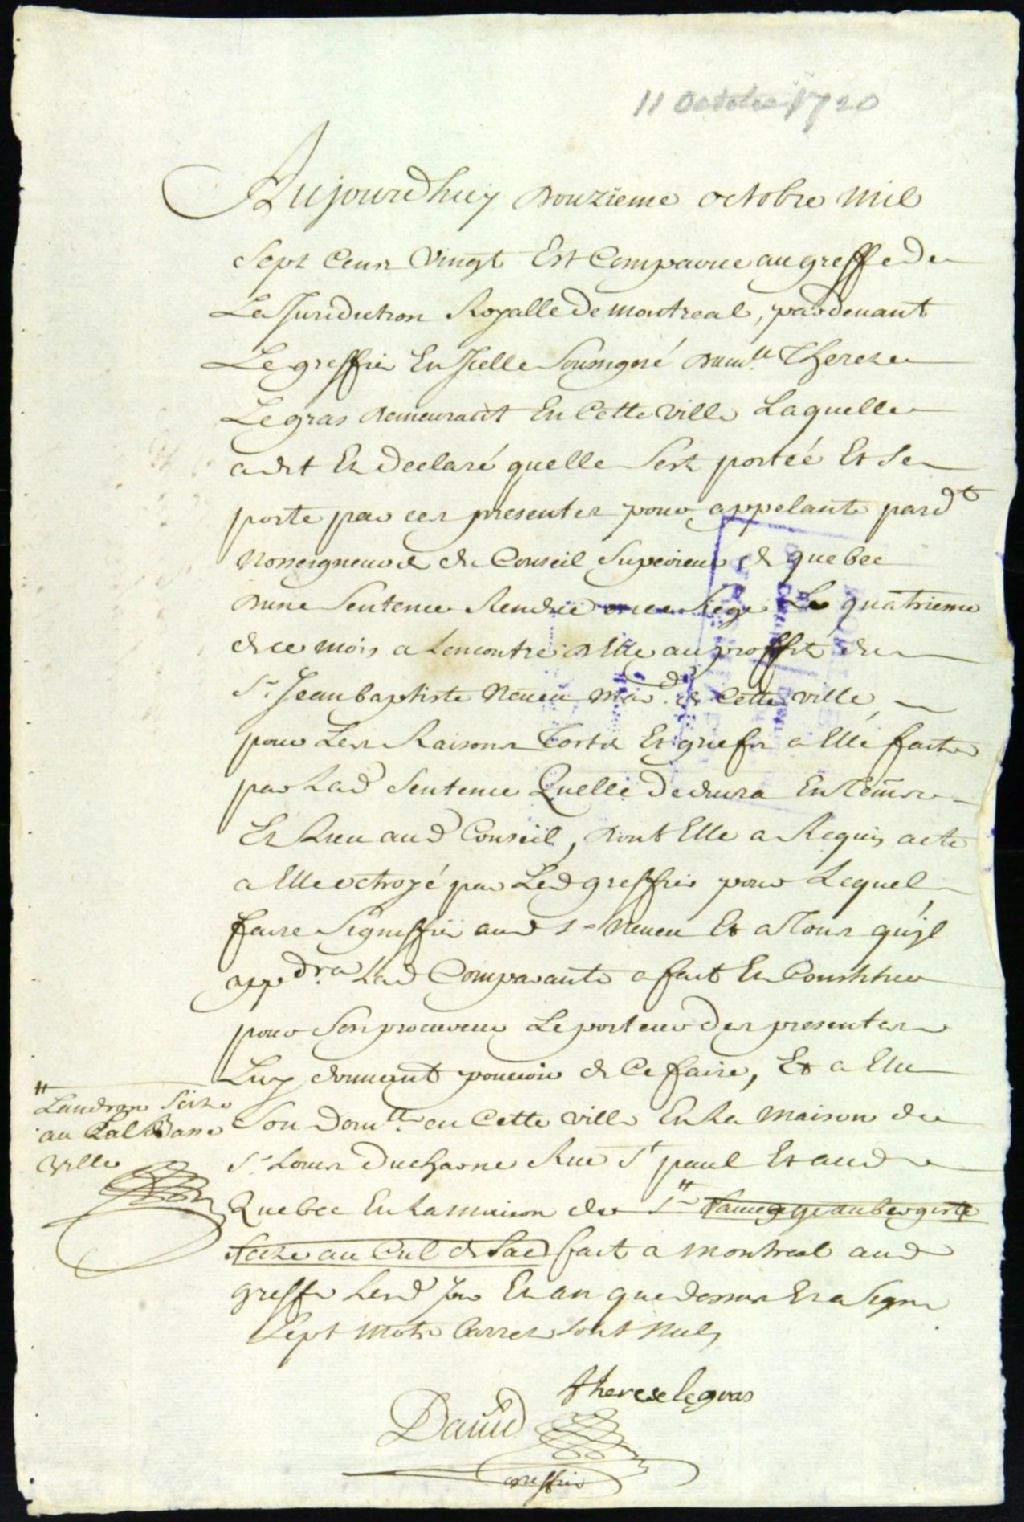 11 Octobre 1720
Aujourdhuy douzieme octobre mil
Sept Cens Vingt Est Comparue au greffe de
La Juridiction Royalle de montreal, pardevant
Le greffier En Icelle Soussigné dam.lle Therese
Legras demeurant En Cette Ville Laquelle
a dit Et declaré quelle s'est portéé Et se
porte par ces presentes pour appelante pard.t
Nosseigneurs du Conseil Superieur de quebec
dune Sentence Rendue en ce Siege Le quatrieme
de ce mois a Lencontre delle au proffit du
S.r Jean baptiste Neveu M.d de Cette ville
pour Les Raisons torts Et griefs a Elle faits
par Lad Sentence Quelle deduira En temps
Et Lieu aud Conseil, dont Elle a Requis acte
a Elle octroyé par Led greffier pour Lequel
faire Signiffier aud S.r Neveu Et a tous quil
app.dra Lad Comparante a fait Et Constitué
pour Son procureur Le porteur des presentes
Luy donnant pouvoir de Ce faire, Et a Elu
Son dom.lle en Cette Ville En La maison du
S.r Louis Duchasne Rue S.t paul Et aud
Quebec En La maison du S.r # aubergiste
Scize au Cul de Sacq fait a montreal aud
greffe Lesd Jour Et an que dessus Et a Signé
Sept mots barrez sont nuls
# Landron Scize
au Basse
Ville
therese legras
David
greffier